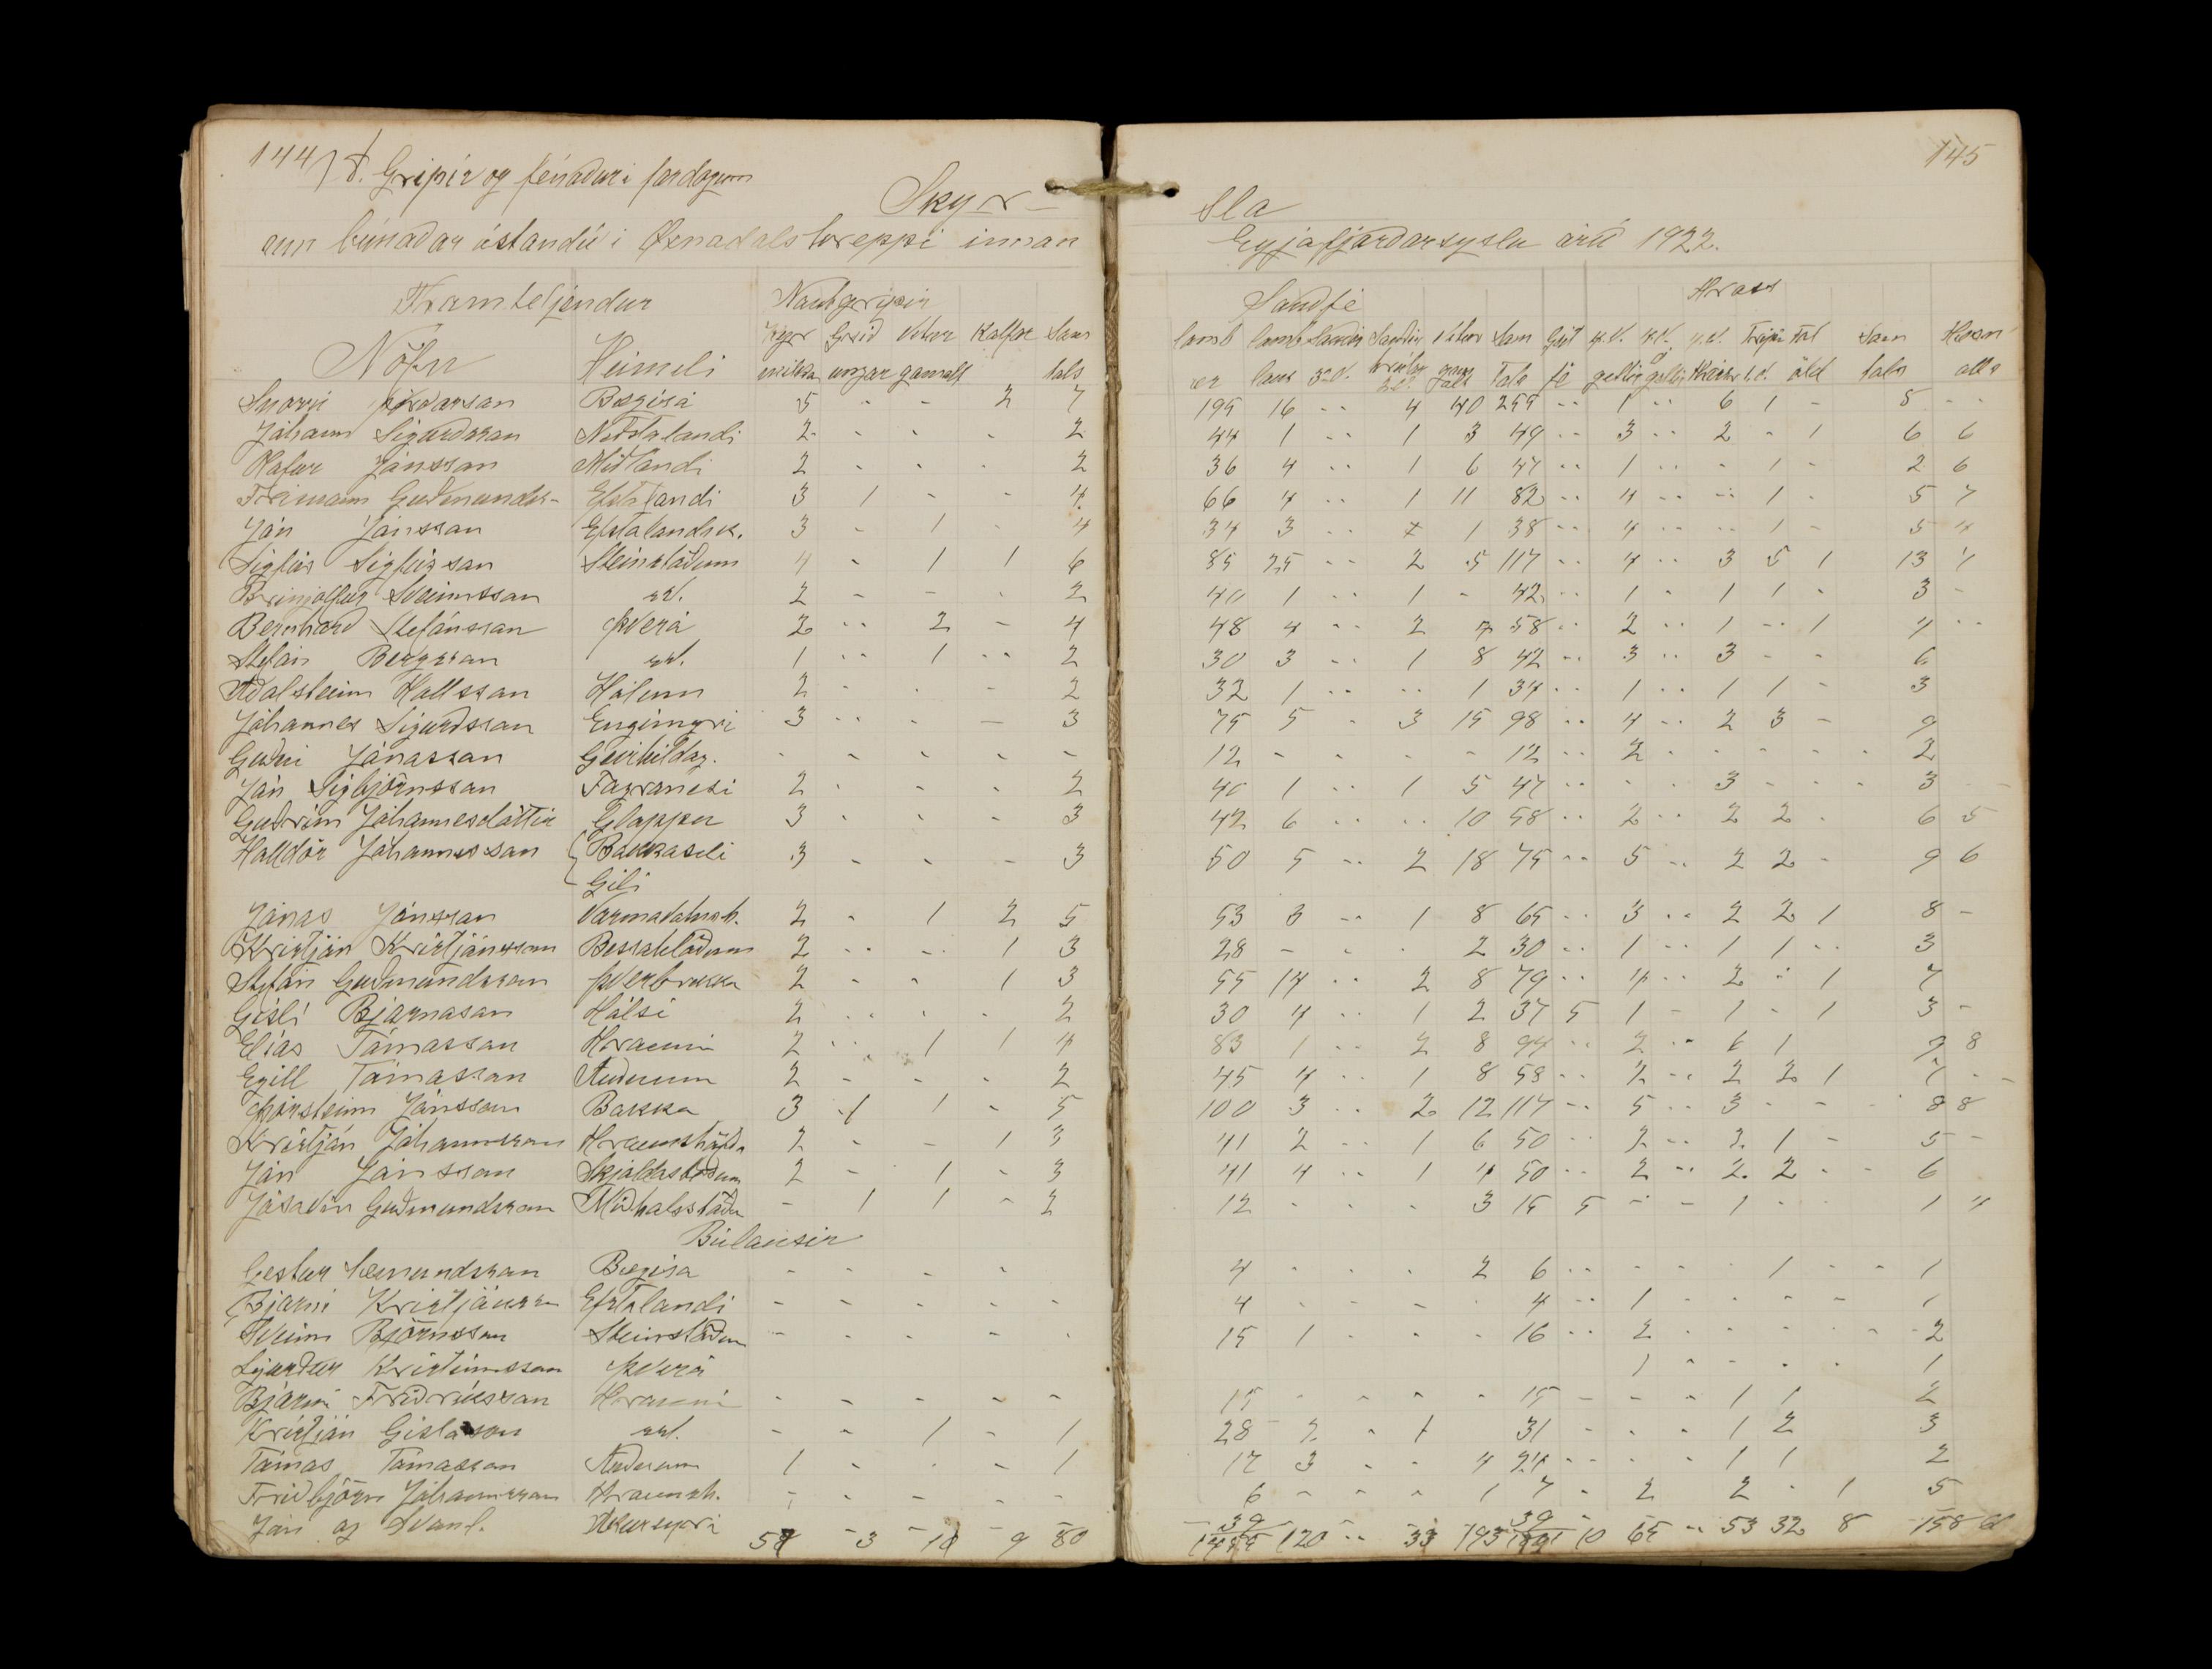 144
8. Gripir og fénaður i fardögum
Skyr-
um búnaðar ástandið i Öxnadalshreppi innan
Framteljendur Nautgripir
Nöfn Heimili Kýr mjólka Grið ungar Vetur gamalt Kálfar Sam tals
Snorri Þórðarson Bægisá 5 - - 2 7
Jóhann Sigurdsson Neðstalandi 2 - - - 2
Jónsson Miðlandi 2 - - - 2
Frímann Guðmunds- Efstalandi 3 1 - - 4
Jón Jónsson Efstalandsk. 3 - 1 - 4
Sigfús Sigfússon Steinstöðum 4 - 1 1 6
Brinjólfur Sveinsson sst. 2 - - - 2
Bernharð Stefánsson Þverá 2 - 2 - 4
Stefán Bergsson sst. 1 - 1 - 2
Aðalsteinn Hallsson Hólum 2 - - - 2
Jóhannes Sigurðsson Engimýri 3 - - - 3
Guðni Jónasson Geirhildag. - - - - -
Jón Sigbjörnsson Fagranesi 2 - - - 2
Guðrún Jóhannesdóttir Gloppu 3 - - - 3
Halldór Jóhannesson { Bakkaseli 3 - - - 3
Gili
Jónas Jónsson Varmavatnsh. 2 - 1 2 5
Kristján Kristjánsson Bessahlöðum 2 - - 1 3
Stefán Guðmundsson Þverbrekka 2 - - 1 3
Gísli Bjarnason Hálsi 2 - - - 2
Elías Tómasson Hrauni 2 - 1 1 4
Egill Tómasson Auðnum 2 - - - 2
Þorsteinn Jónsson Bakka 3 1 1 - 5
Kristján Jóhannsson Hraunshöfða 2 - - 1 3
Jón Jónsson Skjaldastöðum 2 - 1 - 3
Jósavin Guðmundsson Miðhálsstöðu - 1 1 - 2
Búlausir
Gestur Sæmundsson Bægisa - - - -
Bjarni Kristjánss Efstalandi - - - - -
Sveinn Björnsson Steinstöðum - - - - -
Sigurður Kristinsson Þverá
Bjarni Friðriksson Hrauni - - - - -
Kristján Gíslason sst. - - 1 - 1
Tómas Tómasson Auðnum 1 - - - 1
Friðbjörn Jóhannsson Hraunsh. - - - - -
Jón og Svanl.
3 9 80
145
sla
Eyjafjarðarsyslu árið 1922.
Sauðfé Hross
lamb ær Sam Tals Geit fé Sam tals
199 16 - 4 40 259 - 1 - 6 1 - 8 -
44 1 - 1 3 49 - 3 - 2 - 1 6 6
36 4 - 1 6 47 - 1 - - 1 - 2 6
66 4 - 1 11 82 - 4 - - 1 - 5 7
34 3 - 1 38 - 4 - - 1 - 5 4
85 25 - 2 5 117 - 4 - 3 5 1 13 4
40 1 - 1 - 42 - 1 - 1 1 - 3 -
48 4 - 2 58 - 2 - 1 - 1 4 -
30 3 - 1 8 42 - 3 - 3 - - 6
32 1 - - 1 34 - 1 - 1 1 - 3
75 5 - 3 15 98 - 4 - 2 3 - 9
12 - - - - 12 - 2 - - - - 2
40 1 - 1 5 47 - - - 3 - - 3
42 6 - - 10 58 - 2 - 2 2 - 6 5
50 5 - 2 18 75 - 5 - 2 2 - 9 6
53 3 - 1 8 65 - 3 - 2 2 1 8 -
28 - - - 2 30 - 1 - 1 1 - 3
55 14 - 2 8 79 - 4 - 2 - 1 7
30 4 - 1 2 37 5 1 - 1 - 1 3 -
83 1 - 2 8 94 - 2 - 6 1 9 8
45 4 - 1 8 58 - 2 - 2 2 1 7 -
100 3 - 2 12 117 - 5 - 3 - - 8 8
41 2 - 1 6 50 - 2 - 2 1 - 5 -
41 4 - 1 4 50 - 2 - 2 2 - 6
12 - - - 3 15 5 - - 1 - - 1 4
4 - - - 2 6 - - - - 1 - - 1
4 - - - - 4 - 1 - - - - 1
15 1 - - - 16 - 2 - - - - 2
1 - - - - 1
15 - - - - 15 - - - 1 1 2
28 2 - 1 31 - - - 1 2 3
17 3 - - 4 24 - - - 1 1 2
6 - - - 1 7 - 2 2 - 1 5
39 39
120 - 33 193 10 65 - 53 32 8 158